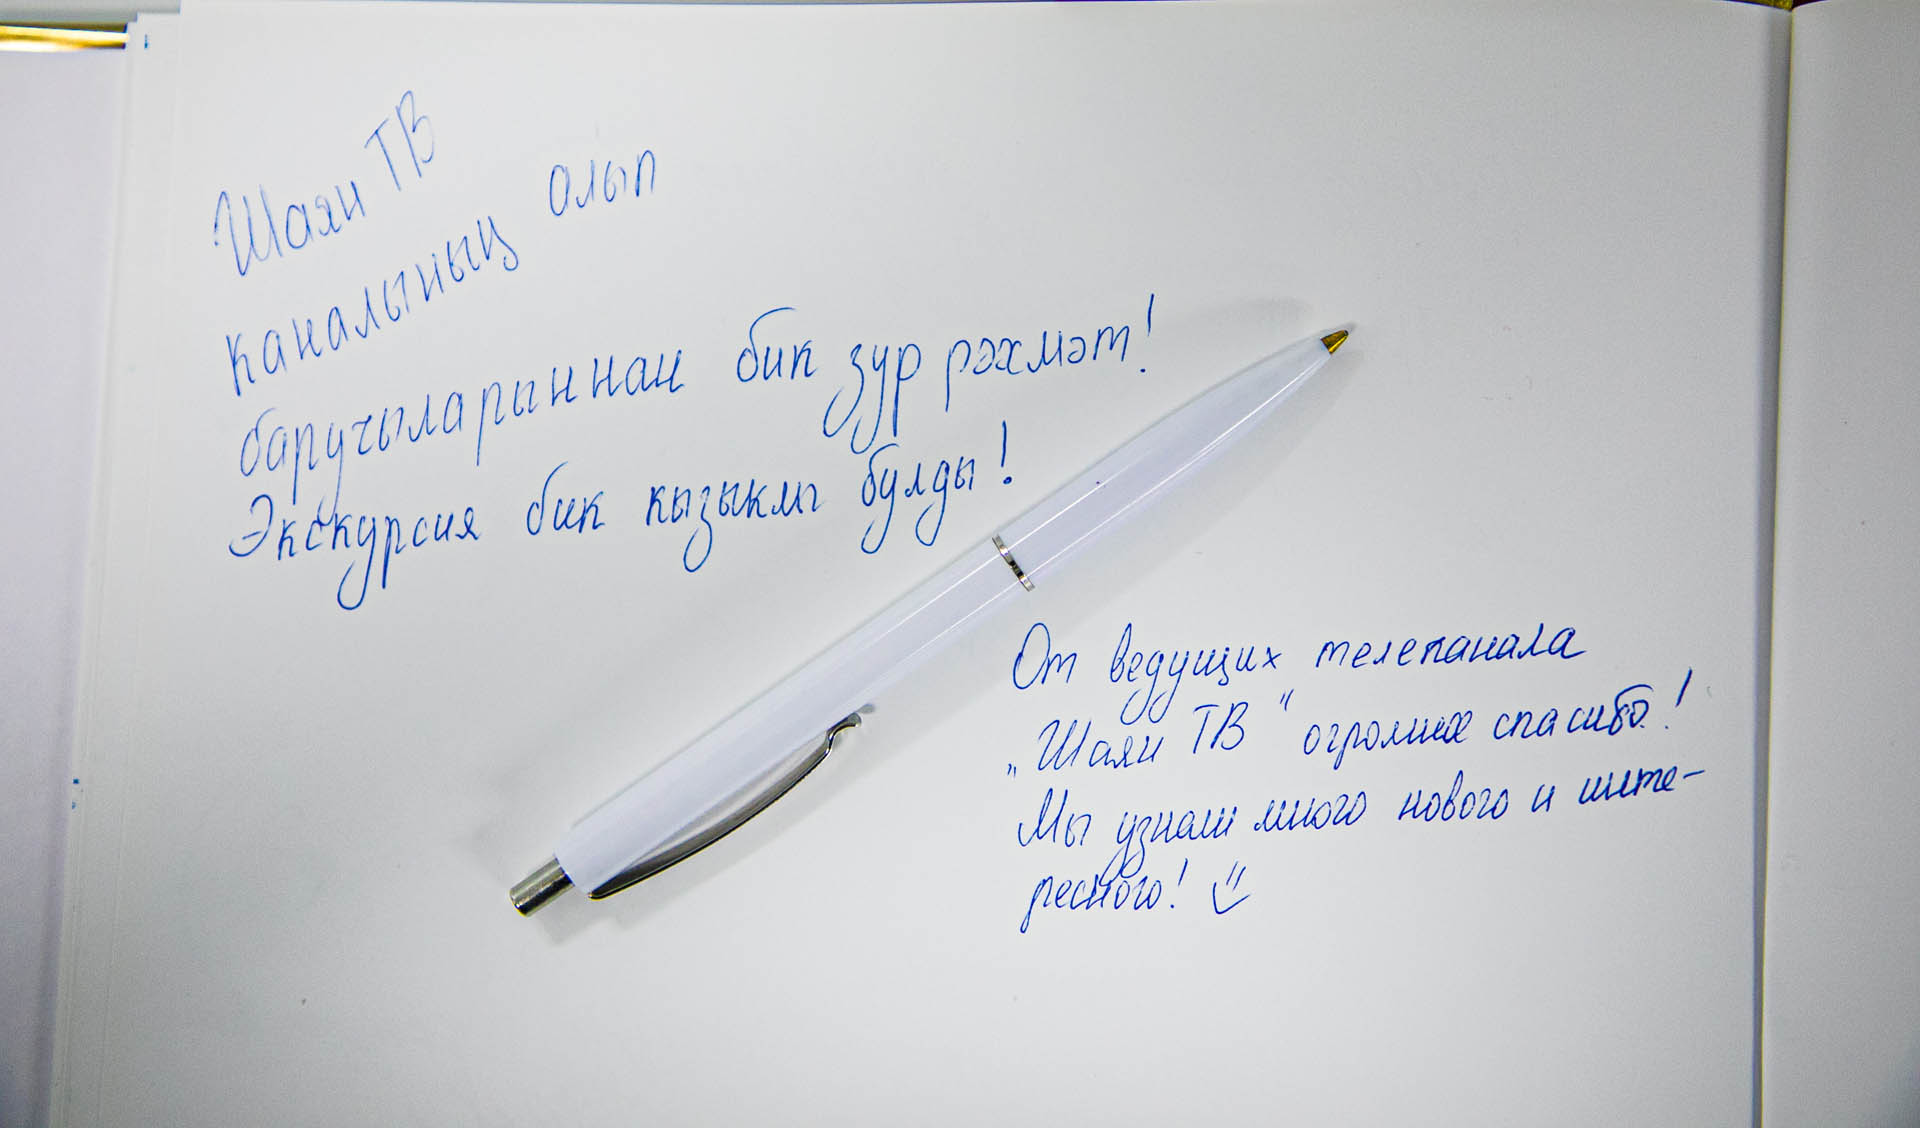 Шаян ТВ
каналының алып
баручыларыннан бик зур рәхмәт!
Экскурсия бик кызыклы булды!
От ведущих телеканала
„Шаян ТВ" огромное спасибо!
Мы узнали много нового и инте-
ресного!